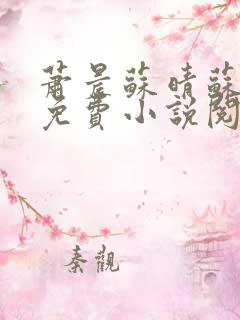 蕭晨蘇晴蘇
免費小說閱
秦觀